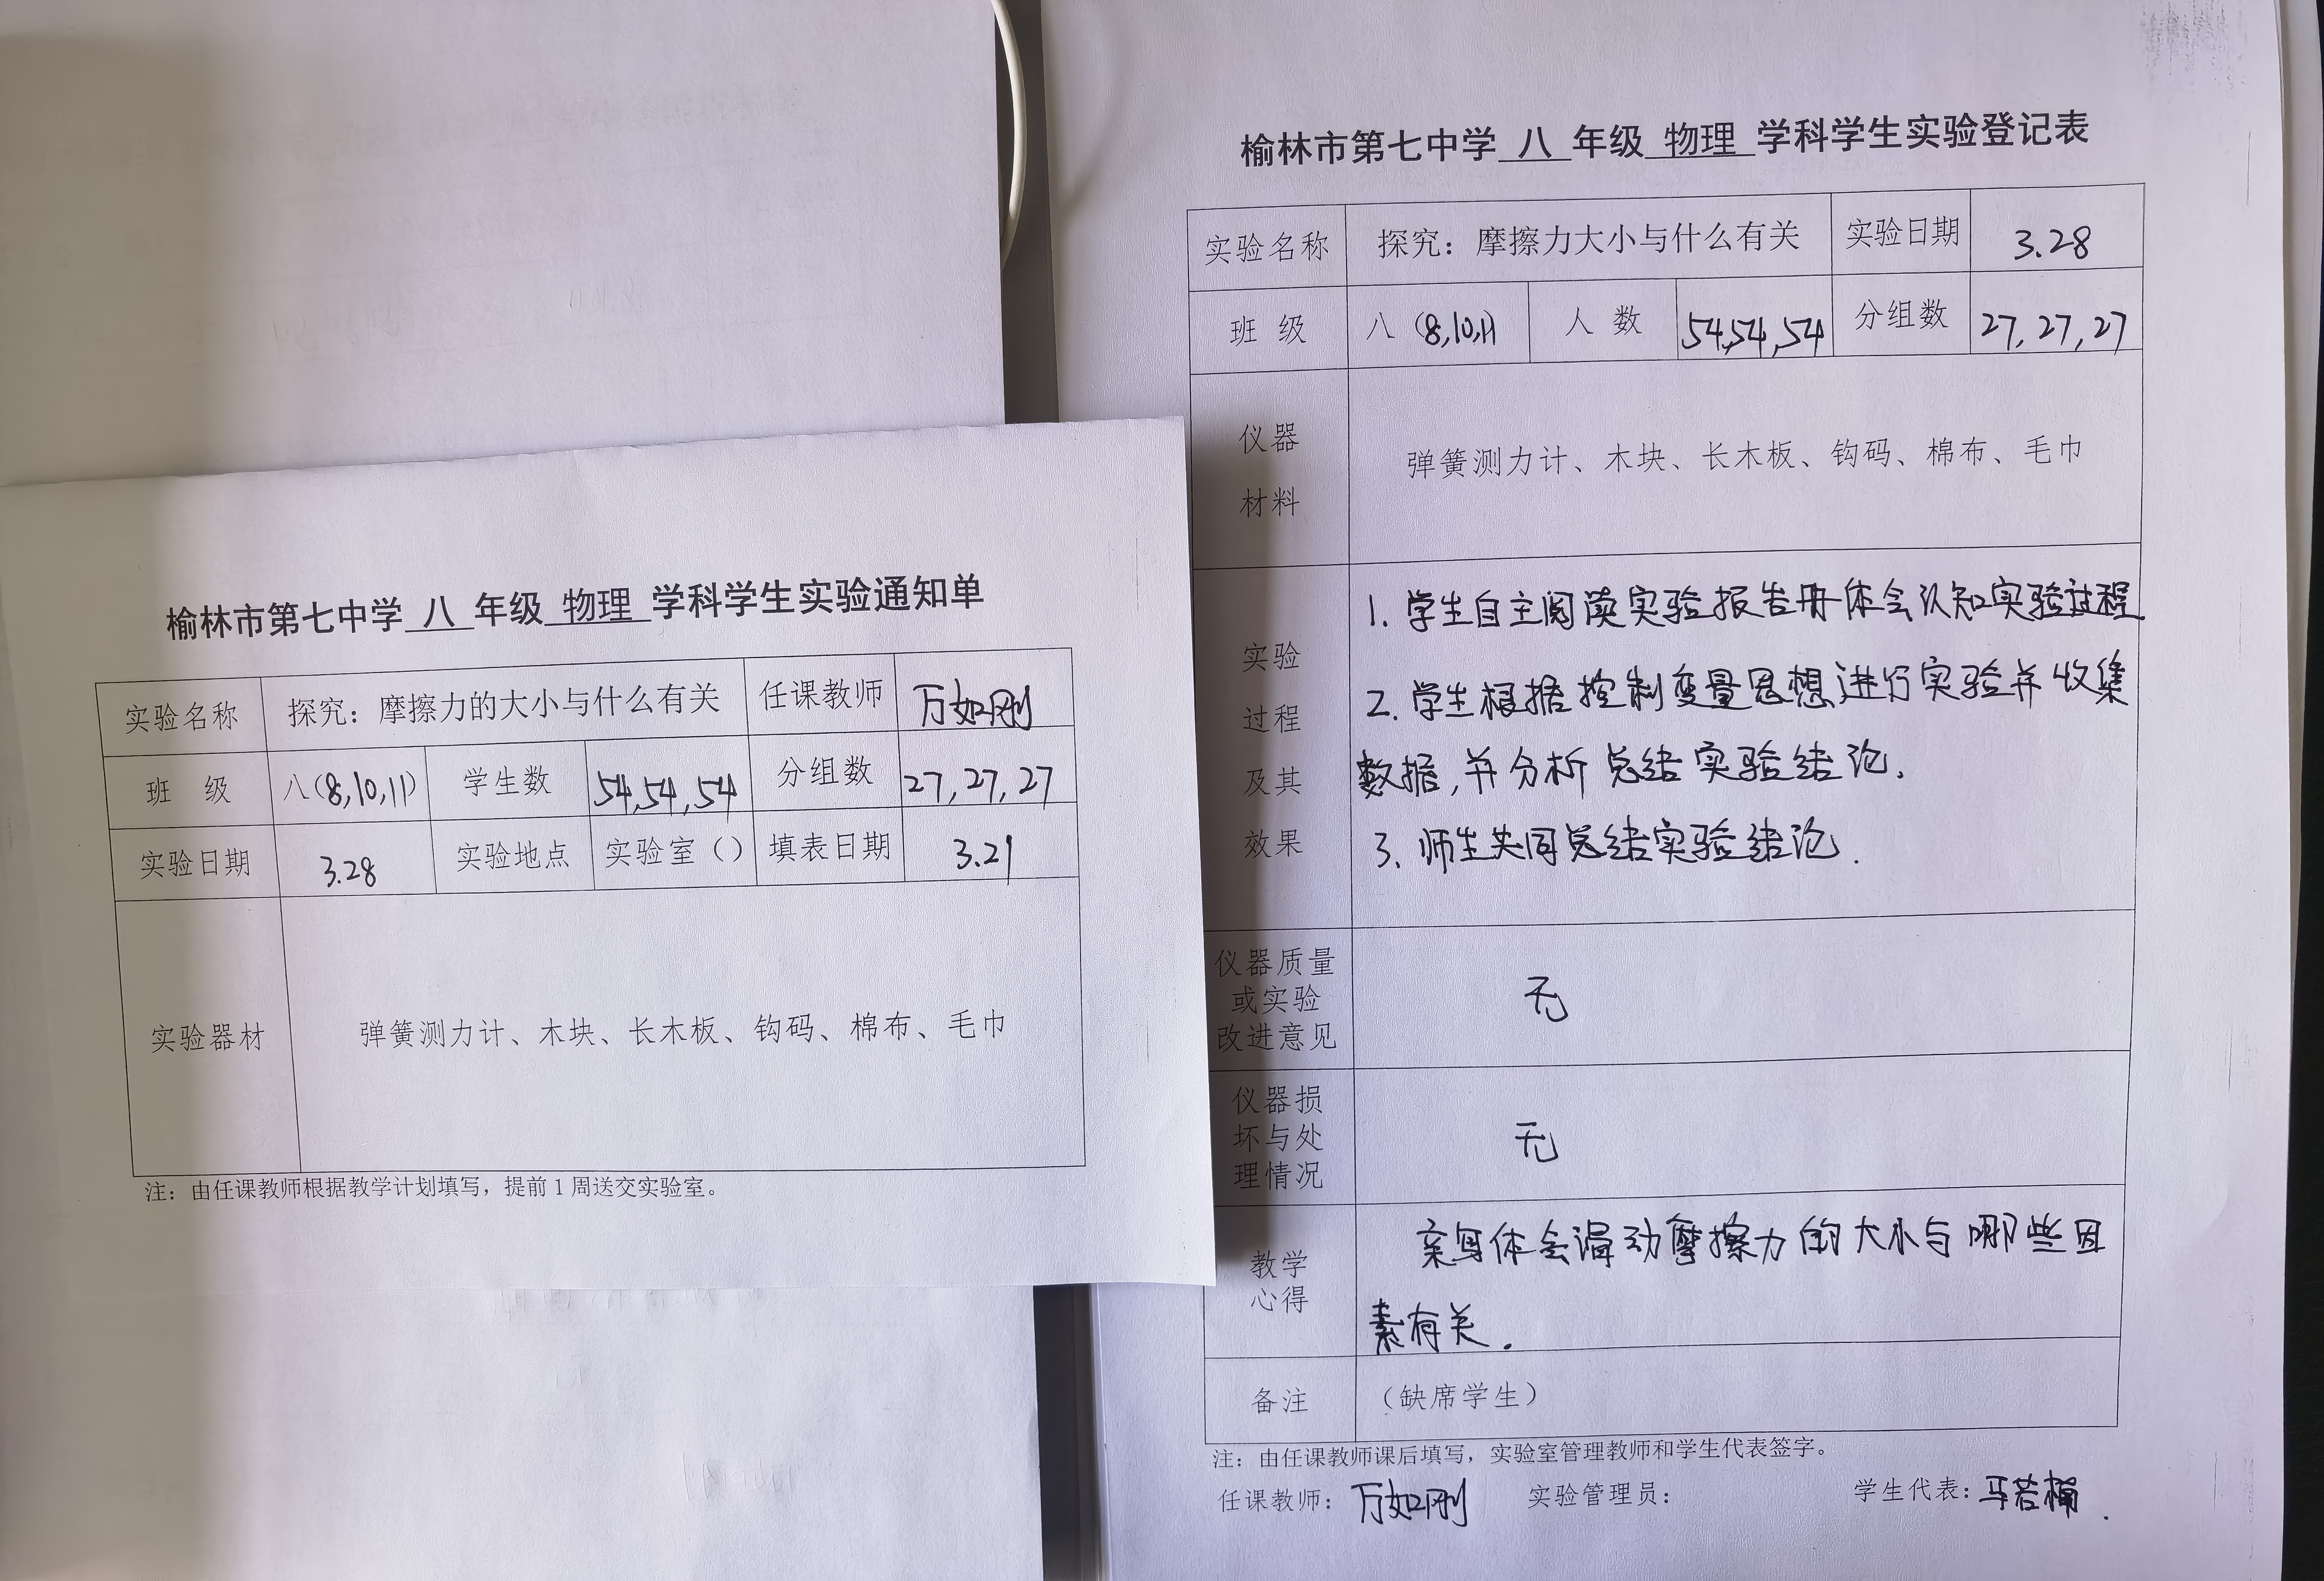 榆林市第七中学 八 年级 物理 学科学生实验通知单
实验名称 探究：摩擦力的大小与什么有关 任课教师 万如刚
班 级 八(8,10,11) 学生数 54,54,54 分组数 27,27,27
实验日期 3.28 实验地点 实验室（） 填表日期 3.21
实验器材 弹簧测力计、木块、长木板、钩码、棉布、毛巾
注：由任课教师根据教学计划填写，提前1周送交实验室。
榆林市第七中学 八 年级 物理 学科学生实验登记表
实验名称 探究：摩擦力大小与什么有关 实验日期 3.28
班 级 八 (8,10,11) 人 数 54,54,54 分组数 27,27,27
仪器
材料
弹簧测力计、木块、长木板、钩码、棉布、毛巾
实验
过程
及其
效果
1. 学生自主阅读实验报告册体会认知实验过程
2. 学生根据控制变量思想进行实验并收集
数据,并分析总结实验结论.
3. 师生共同总结实验结论.
仪器质量
或实验
改进意见
无
仪器损
坏与处
理情况
无
教学
心得
亲身体会滑动摩擦力的大小与哪些因
素有关.
备注 （缺席学生）
注：由任课教师课后填写，实验室管理教师和学生代表签字。
任课教师：万如刚 实验管理员： 学生代表：马若楠.